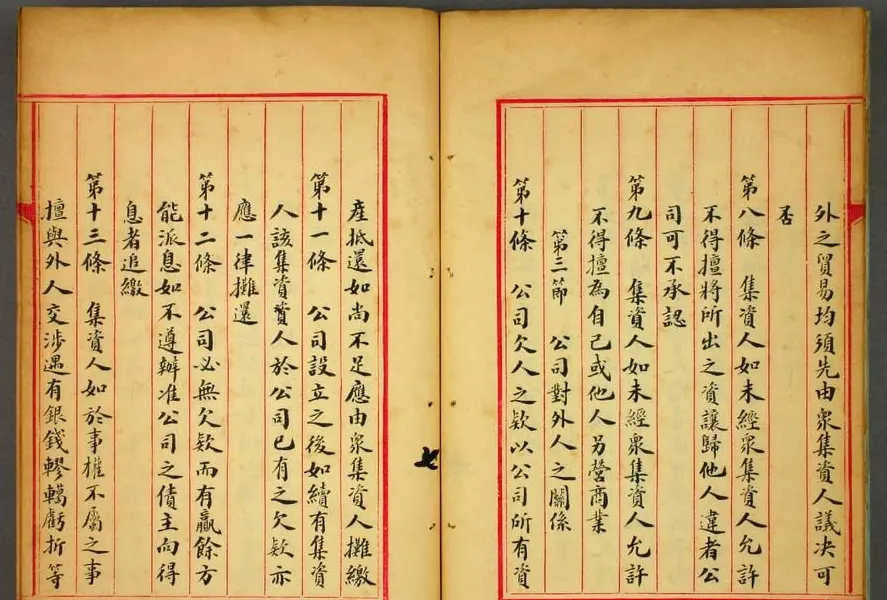 外之貿易均須先由衆集資人議决可
否
第八條 集資人如未經衆集資人允許
不得擅將所出之資讓歸他人違者公
司可不承認
第九條 集資人如未經衆集資人允許
不得擅為自己或他人另營商業
第三節 公司對外人之關係
第十條 公司欠人之欵以公司所有資
產抵還如尚不足應由衆集資人攤繳
第十一條 公司設立之後如續有集資
人該集資人於公司已有之欠欵亦
應一律攤還
第十二條 公司必無欠欵而有贏餘方
能派息如不遵辦准公司之債主向得
息者追繳
第十三條 集資人如於事權不屬之事
擅與外人交涉遇有銀錢轇轕虧折等